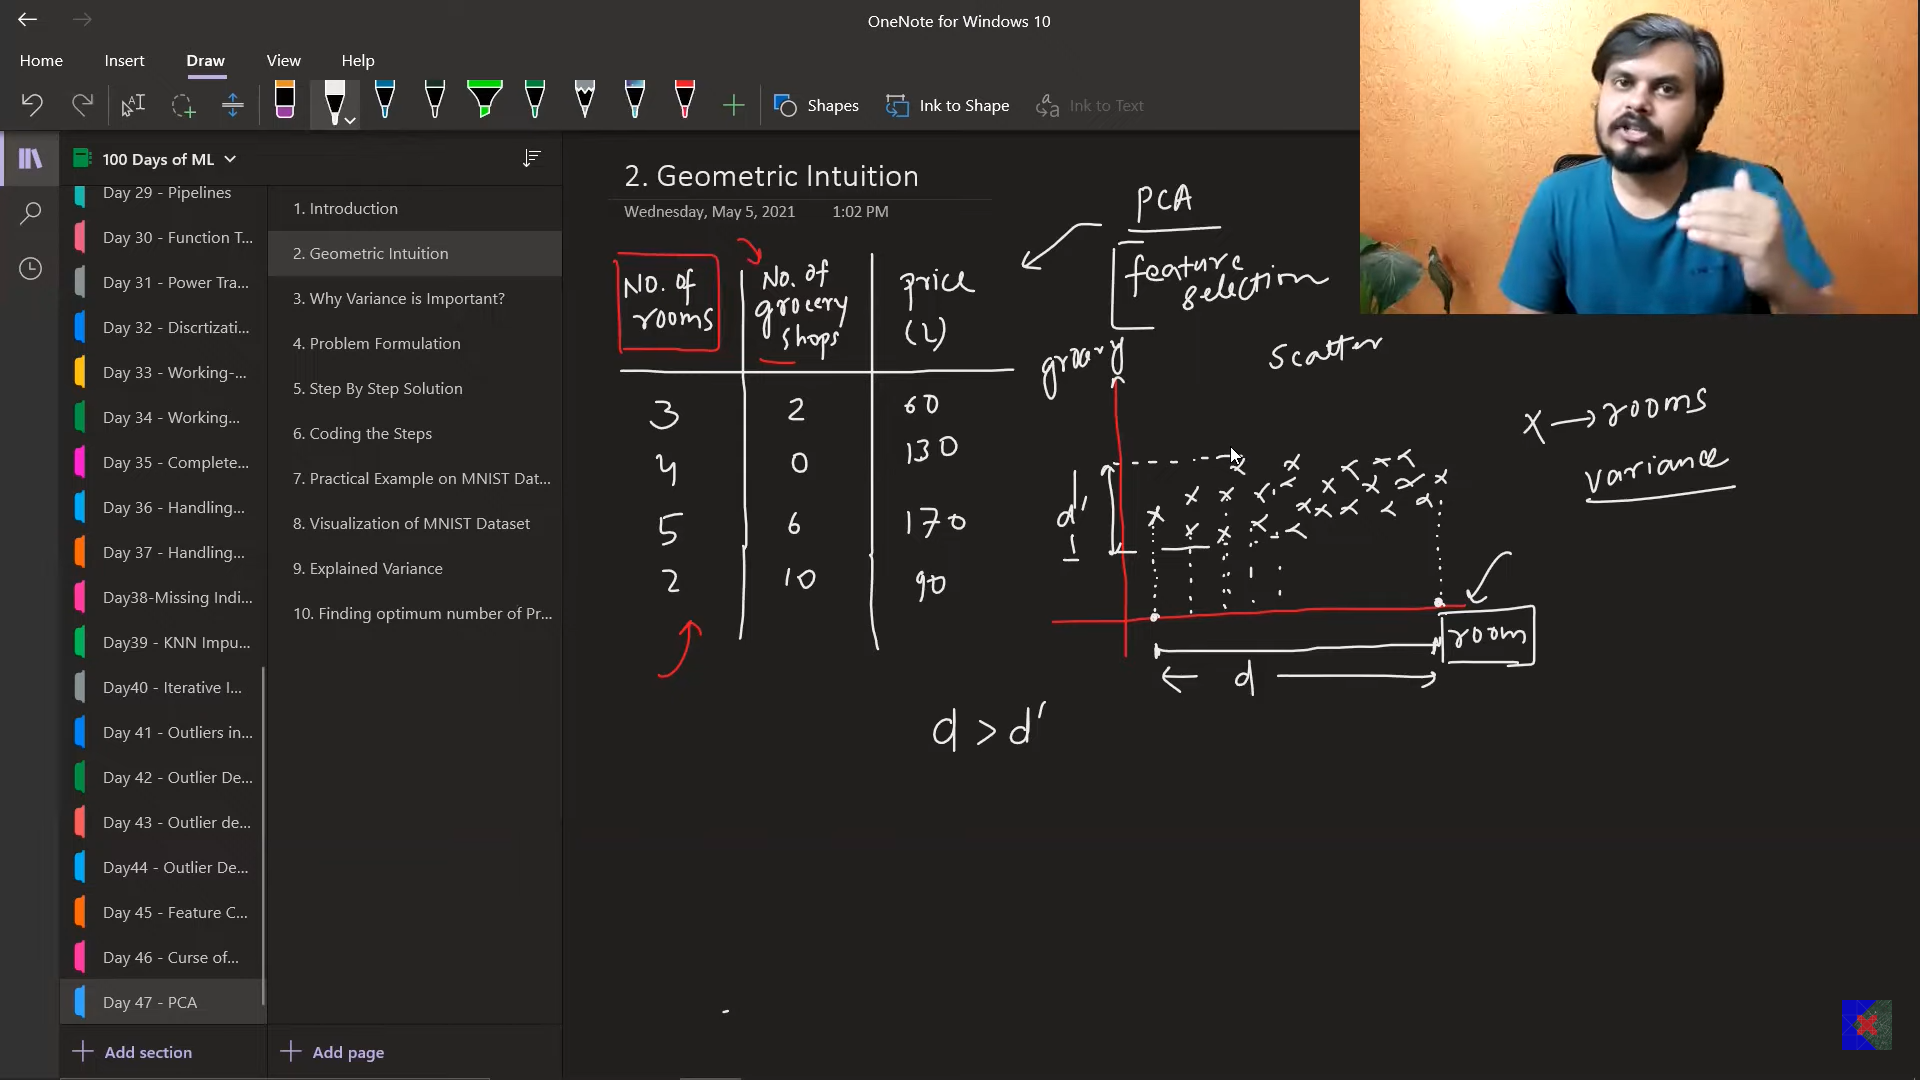 OneNote for Windows 10
Home Insert Draw View Help
Shapes Ink to Shape Ink to Text
100 Days of ML
Day 29 - Pipelines
Day 30 - Function T...
Day 31 - Power Tra...
Day 32 - Discrtizati...
Day 33 - Working-...
Day 34 - Working...
Day 35 - Complete...
Day 36 - Handling...
Day 37 - Handling...
Day38-Missing Indi...
Day39 - KNN Impu...
Day40 - Iterative I...
Day 41 - Outliers in...
Day 42 - Outlier De...
Day 43 - Outlier de...
Day44 - Outlier De...
Day 45 - Feature C...
Day 46 - Curse of...
Day 47 - PCA
Add section
1. Introduction
2. Geometric Intuition
3. Why Variance is Important?
4. Problem Formulation
5. Step By Step Solution
6. Coding the Steps
7. Practical Example on MNIST Dat...
8. Visualization of MNIST Dataset
9. Explained Variance
10. Finding optimum number of Pr...
Add page
2. Geometric Intuition
Wednesday, May 5, 2021 1:02 PM
No. of rooms
No. of grocery shops
price (L)
3 2 60
4 0 130
5 6 170
2 10 90
PCA
feature
selection
scatter
grocery
X → rooms
variance
d'
room
d
d > d'